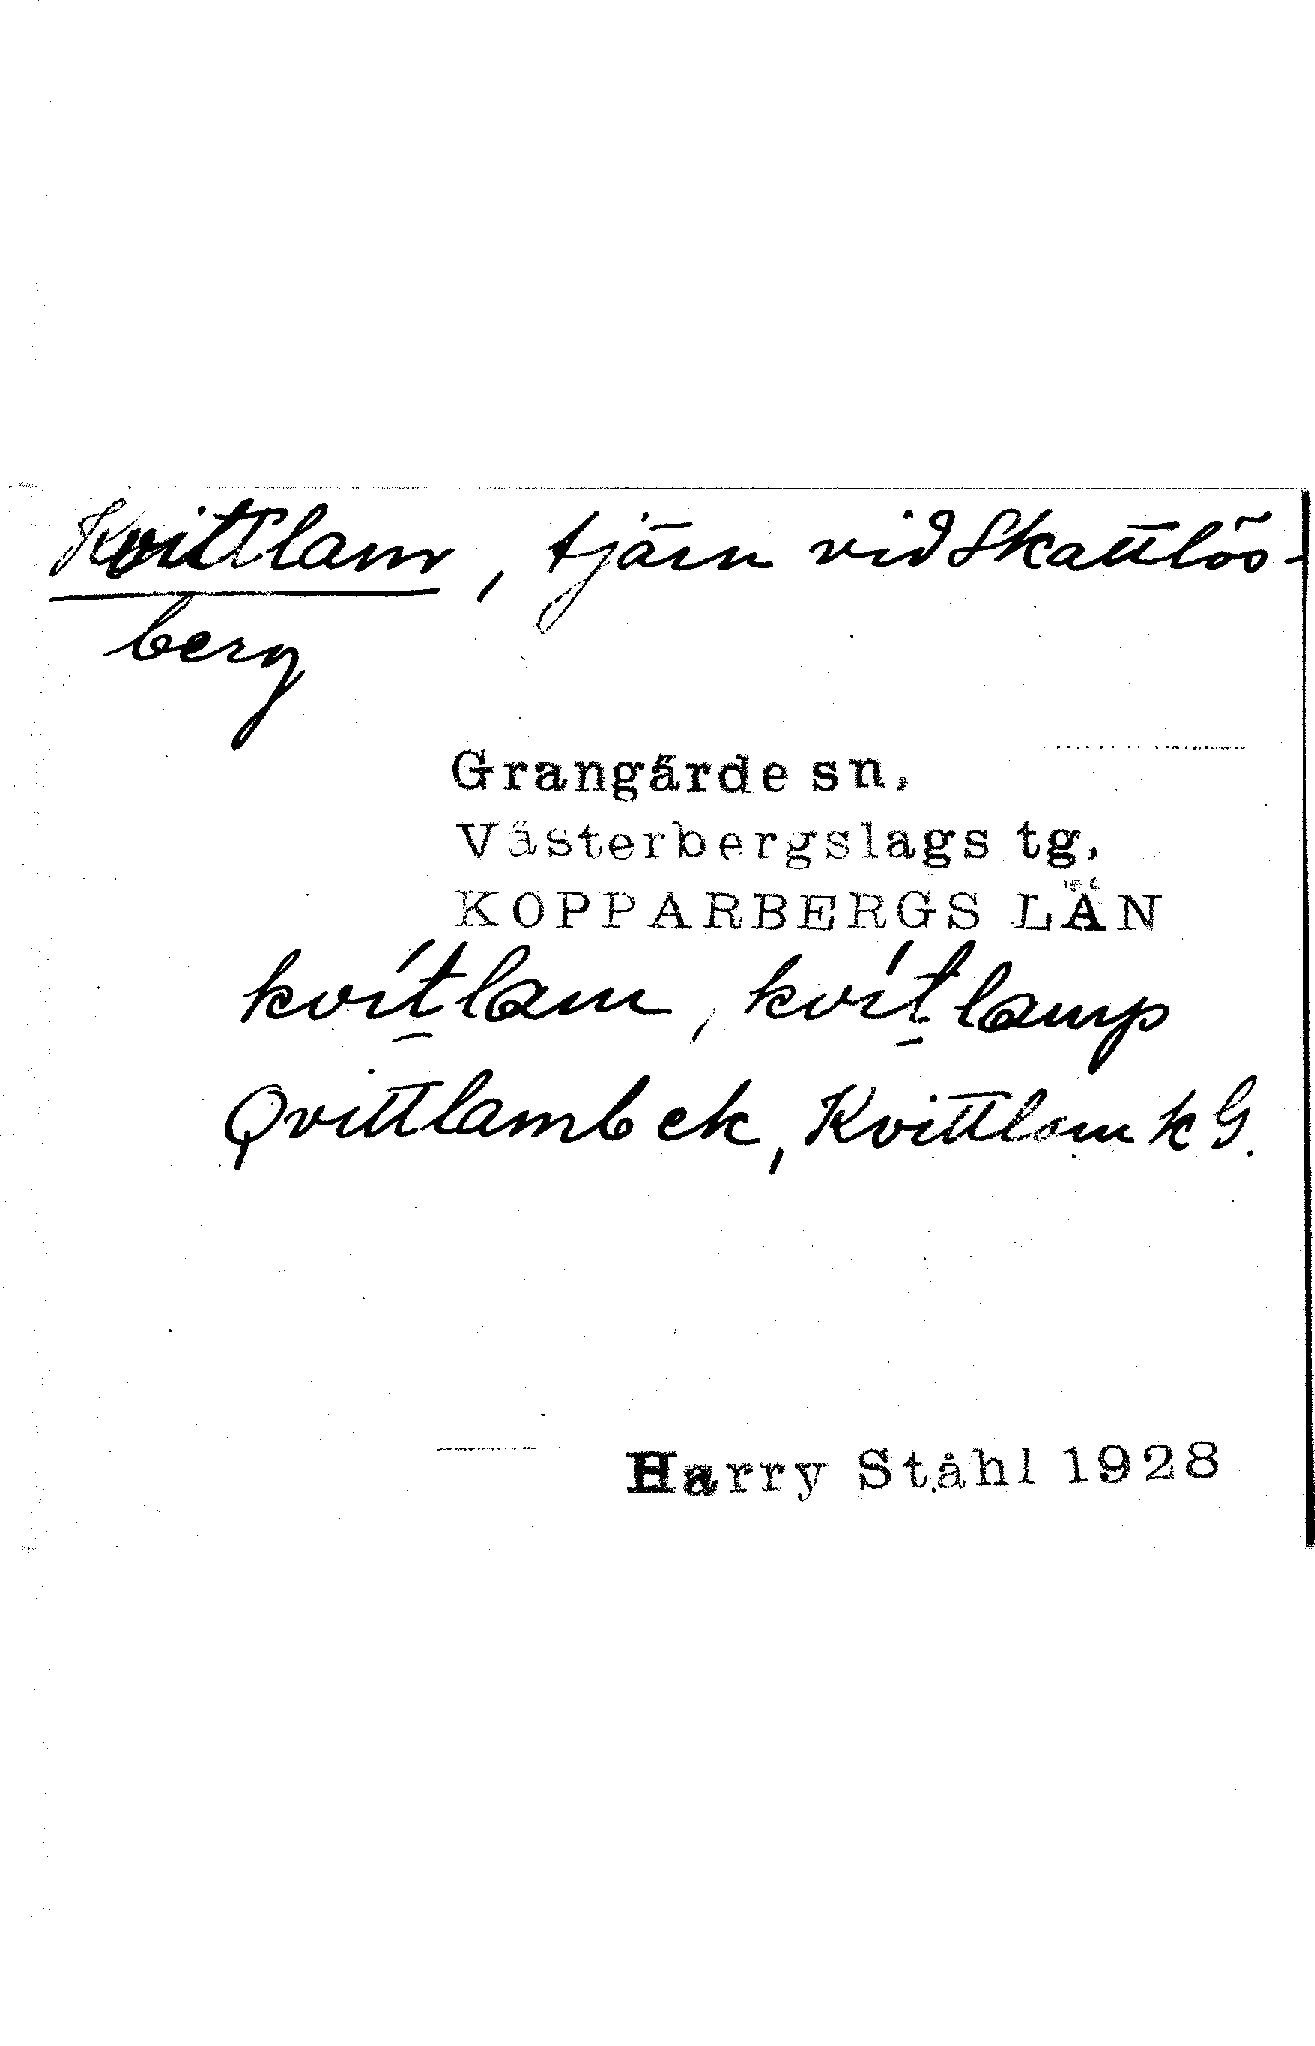 Kvittlam, tjärn vid Skattlös-
berg
Grangärde sn,
Västerbergslags tg,
KOPPARBERGS LÄN
kvít̠lam, kvít̠lamp
Qvittlamb ek, Kvittlam k G.
Harry Ståhl 1928